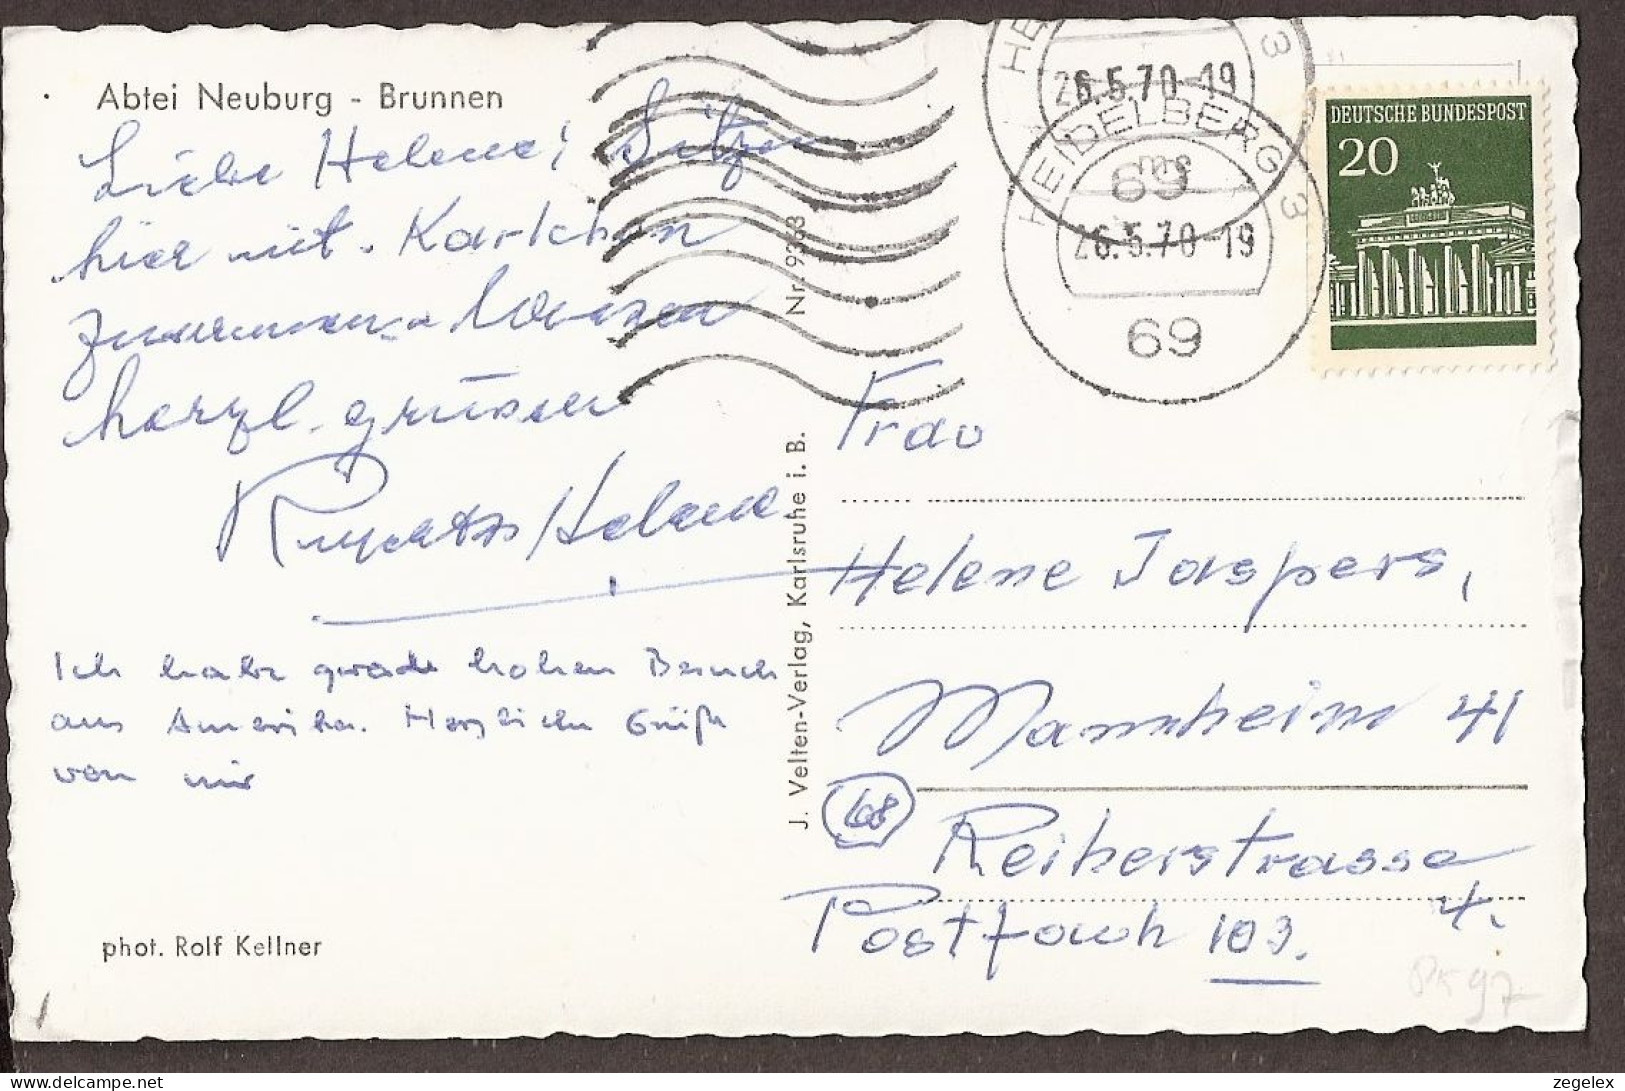 Abtei Neuburg - Brunnen
Liebe Helene! Sitzen
hier mit Karlchen
zusammen u. lassen
herzl. grüssen
Helene
Ich habe gerade hohen Besuch
aus Amerika. Herzliche Grüße
von mir
phot. Rolf Kellner
Nr. 9333
J. Velten-Verlag, Karlsruhe i. B.
HEIDELBERG 3
26.5.70-19
ms
69
HEIDELBERG 3
26.5.70-19
69
DEUTSCHE BUNDESPOST
20
Frau
Helene Jaspers,
Mannheim 41
68
Reiherstrasse
4.
Postfach 103.
PK97
zegelex
delcampe.net